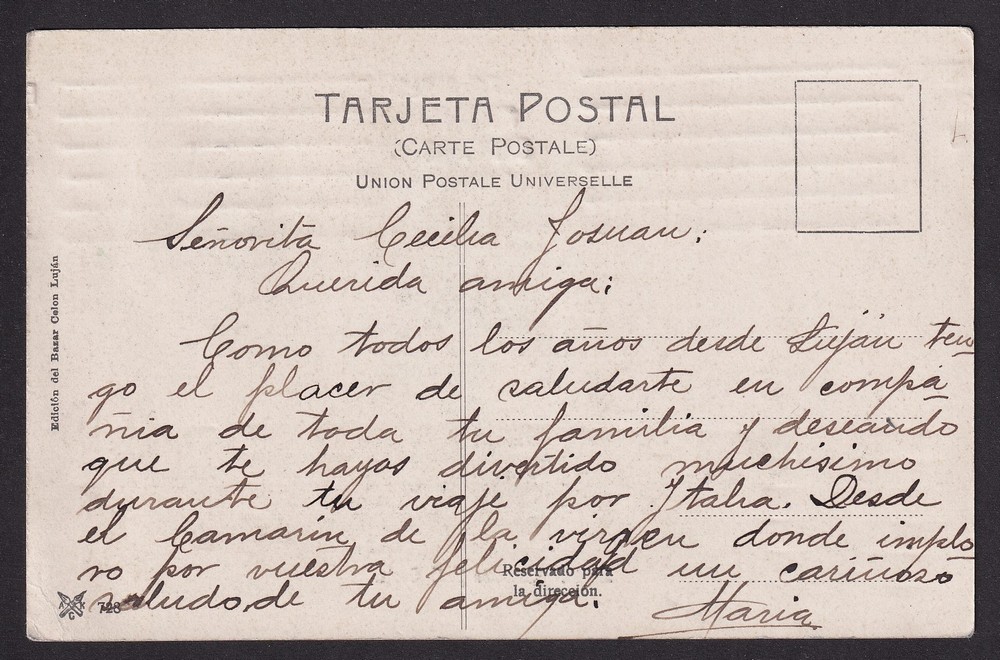 TARJETA POSTAL
(CARTE POSTALE)
UNION POSTALE UNIVERSELLE
Señorita Cecilia Josuan:
Querida amiga:
Como todos los años desde Luján ten-
go el placer de saludarte en compa-
ñia de toda tu familia y deseando
que te hayas divertido muchisimo
durante tu viaje por Italia. Desde
el Camarin de la virgen donde implo-
ro por vuestra felicidad un cariñoso
saludo de tu amiga.
Maria
Reservado para
la dirección.
Edición del Bazar Colon Luján
728